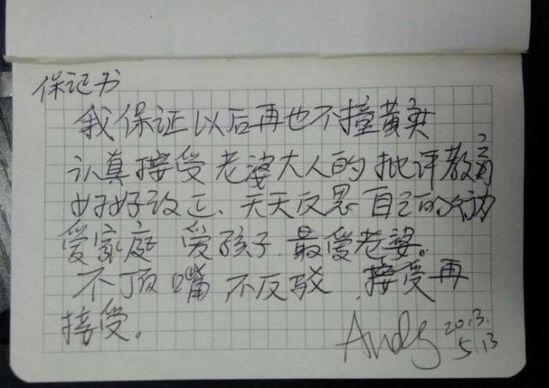 保证书
我保证以后再也不撞黄奕
认真接受老婆大人的批评教育
好好改正、天天反思自己的行动
爱家庭 爱孩子.最爱老婆。
不顶嘴 不反驳.接受再
接受。
Andy 2013.
5.13